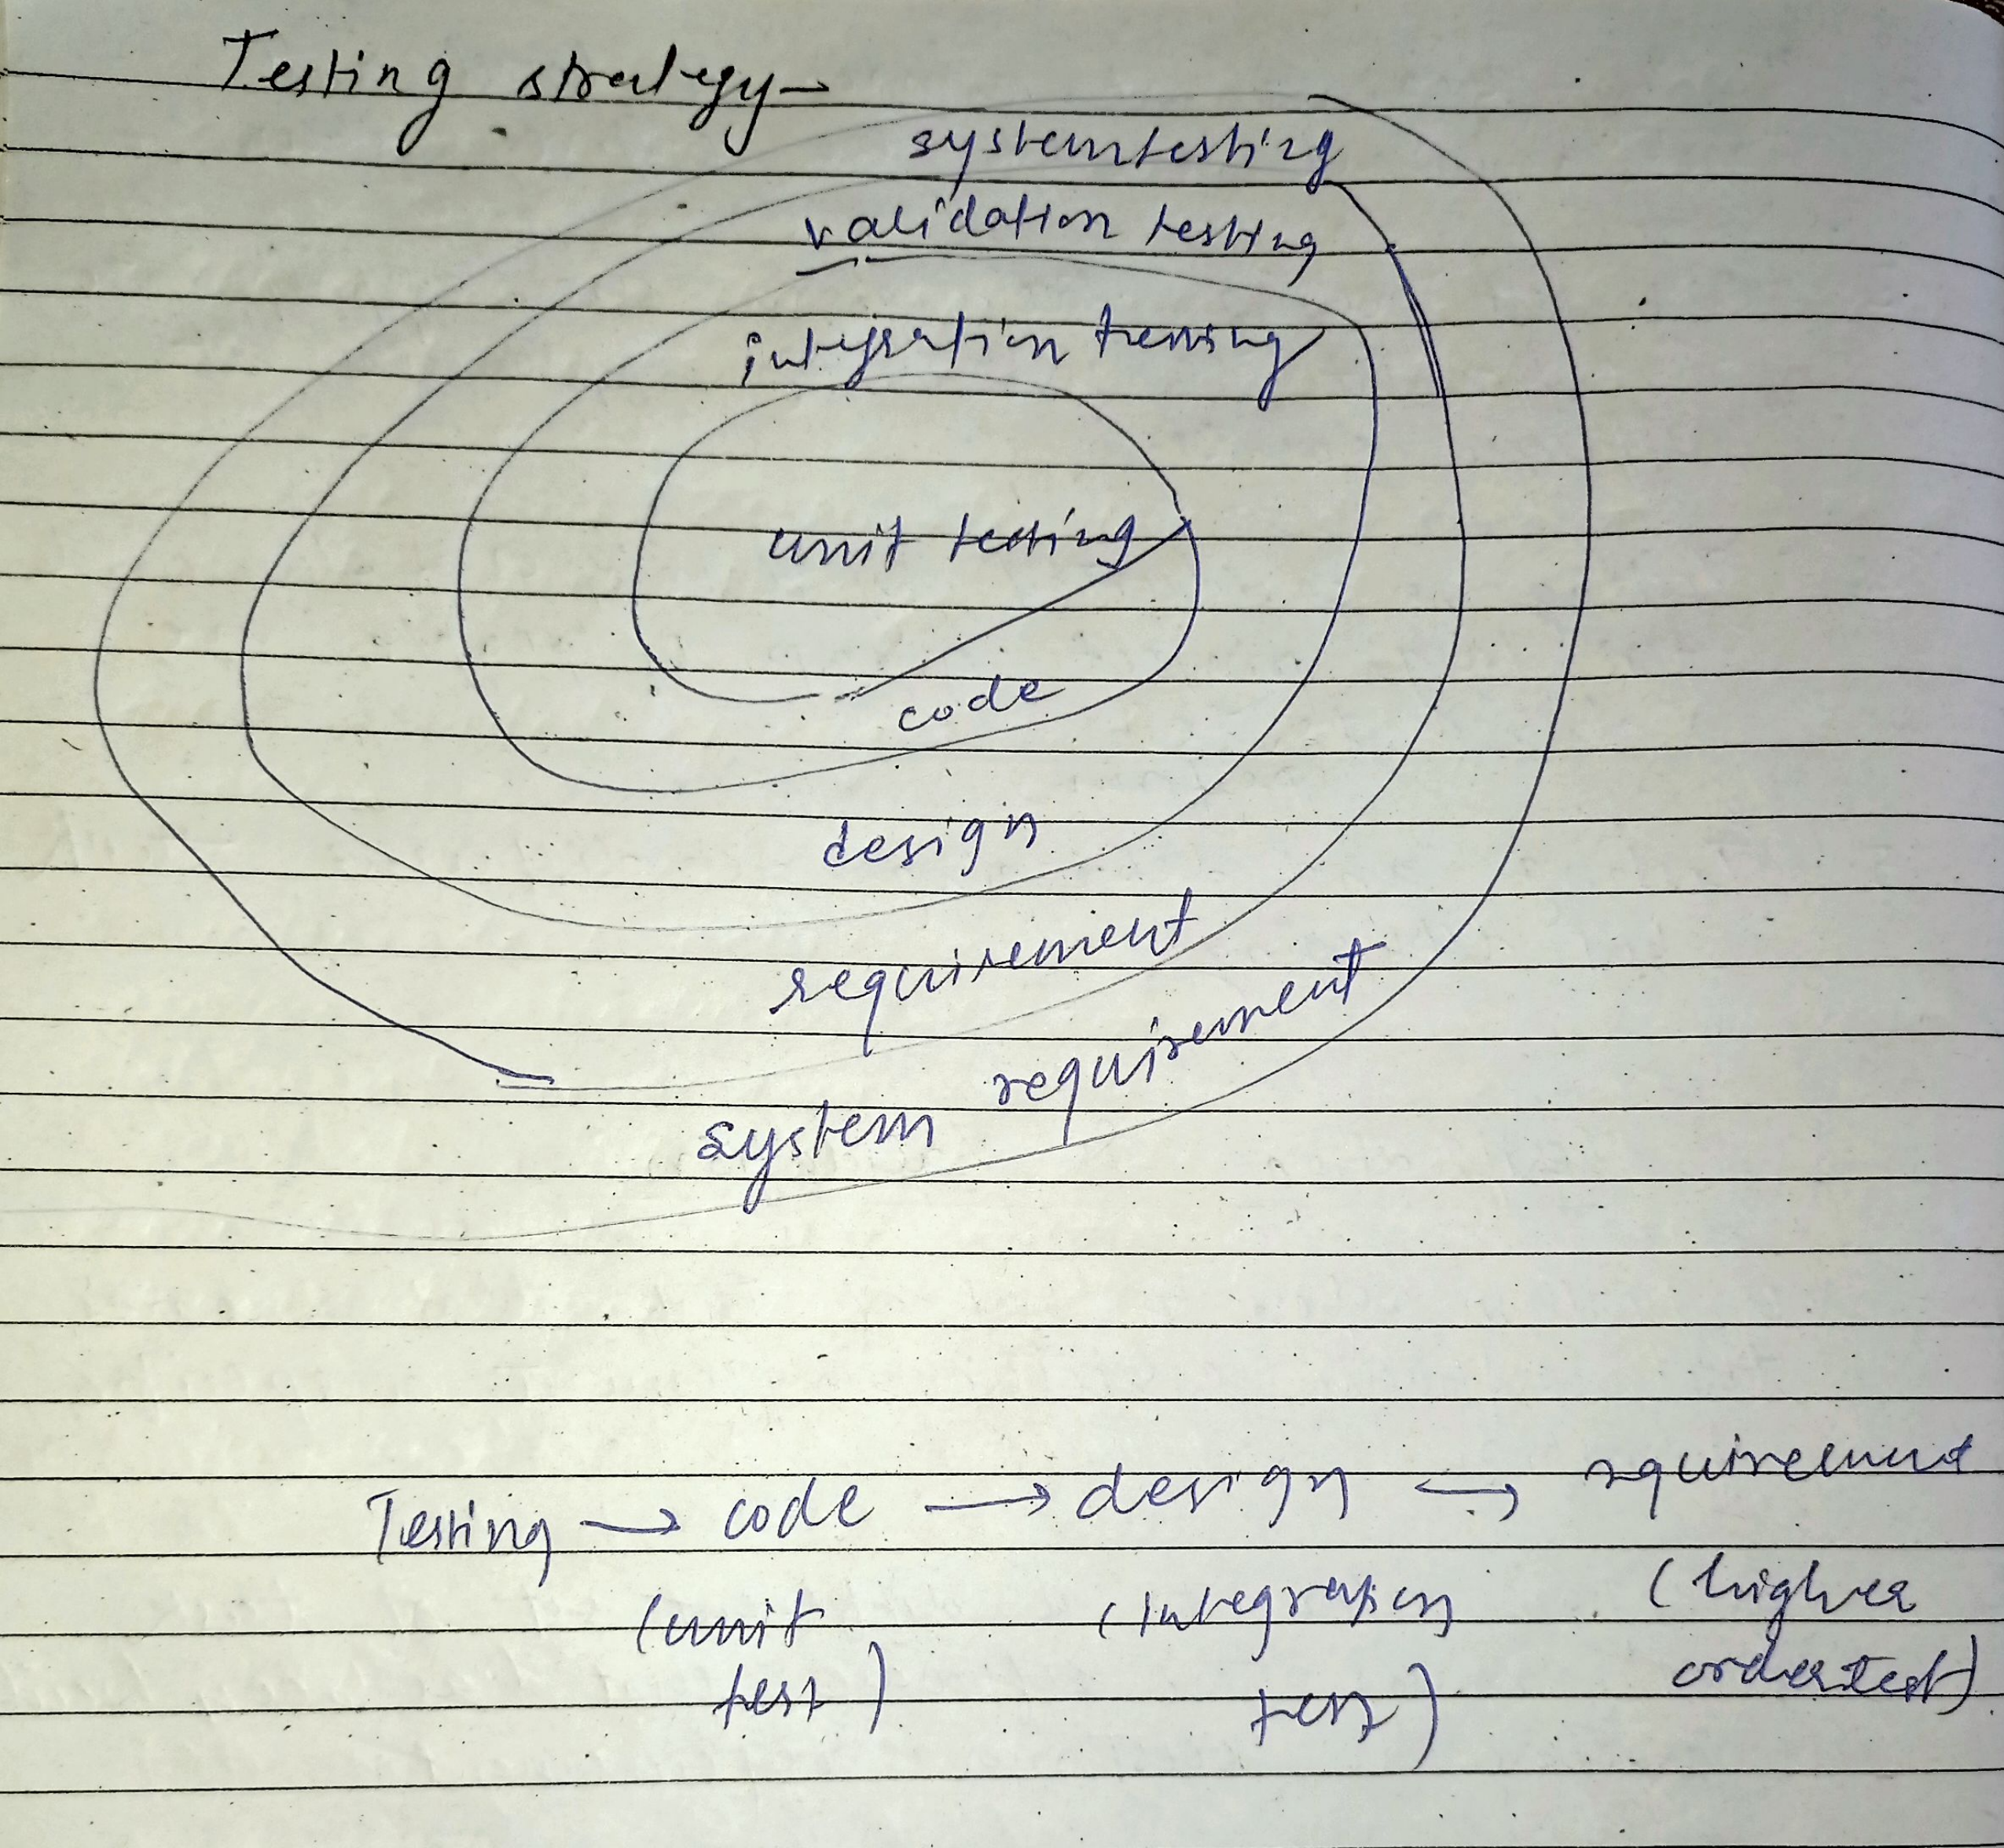 Testing strategy
system testing
validation testing
integration tessing
unit testing
code
design
requirement
system requirement
Testing → code → design → requirement
(unit (Integration (higher
test) test) order test)